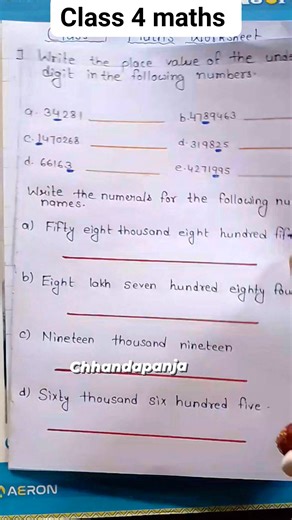 Class 4 maths
Class Maths Worksheet
I Write the place value of the und
digit in the following numbers.
a. 34281
b. 4789463
c. 1470268
d. 319825
d. 66163
e. 4271995
Write the numerals for the following nu
names.
a) Fifty eight thousand eight hundred fift
b) Eight lakh seven hundred eighty fou
c) Nineteen thousand nineteen
Chhandapanja
d) Sixty thousand six hundred five.
AERON